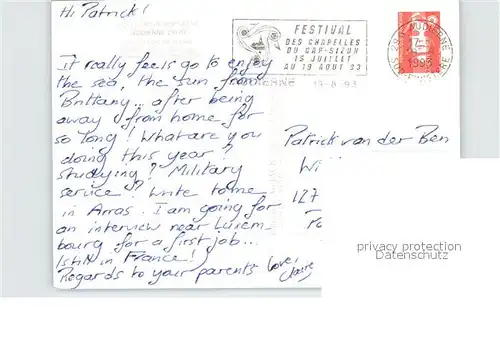 Hi Patrick!
It really feels go to enjoy
the sea, the sun from
Brittany... after being
away from home for
so long! What are you
doing this year?
studying? Military
service? Write to me
in Arras. I am going for
an interview near Luxem-
bourg for a first job...
(still in France!)
Regards to your parents
Love,
Claire
FESTIVAL
DES CHAPELLES
DU CAP-SIZUN
15 JUILLET
AU 19 AOUT 93
19-8-93
1993
Patrick van der Ben
Wi
127
privacy protection
Datenschutz